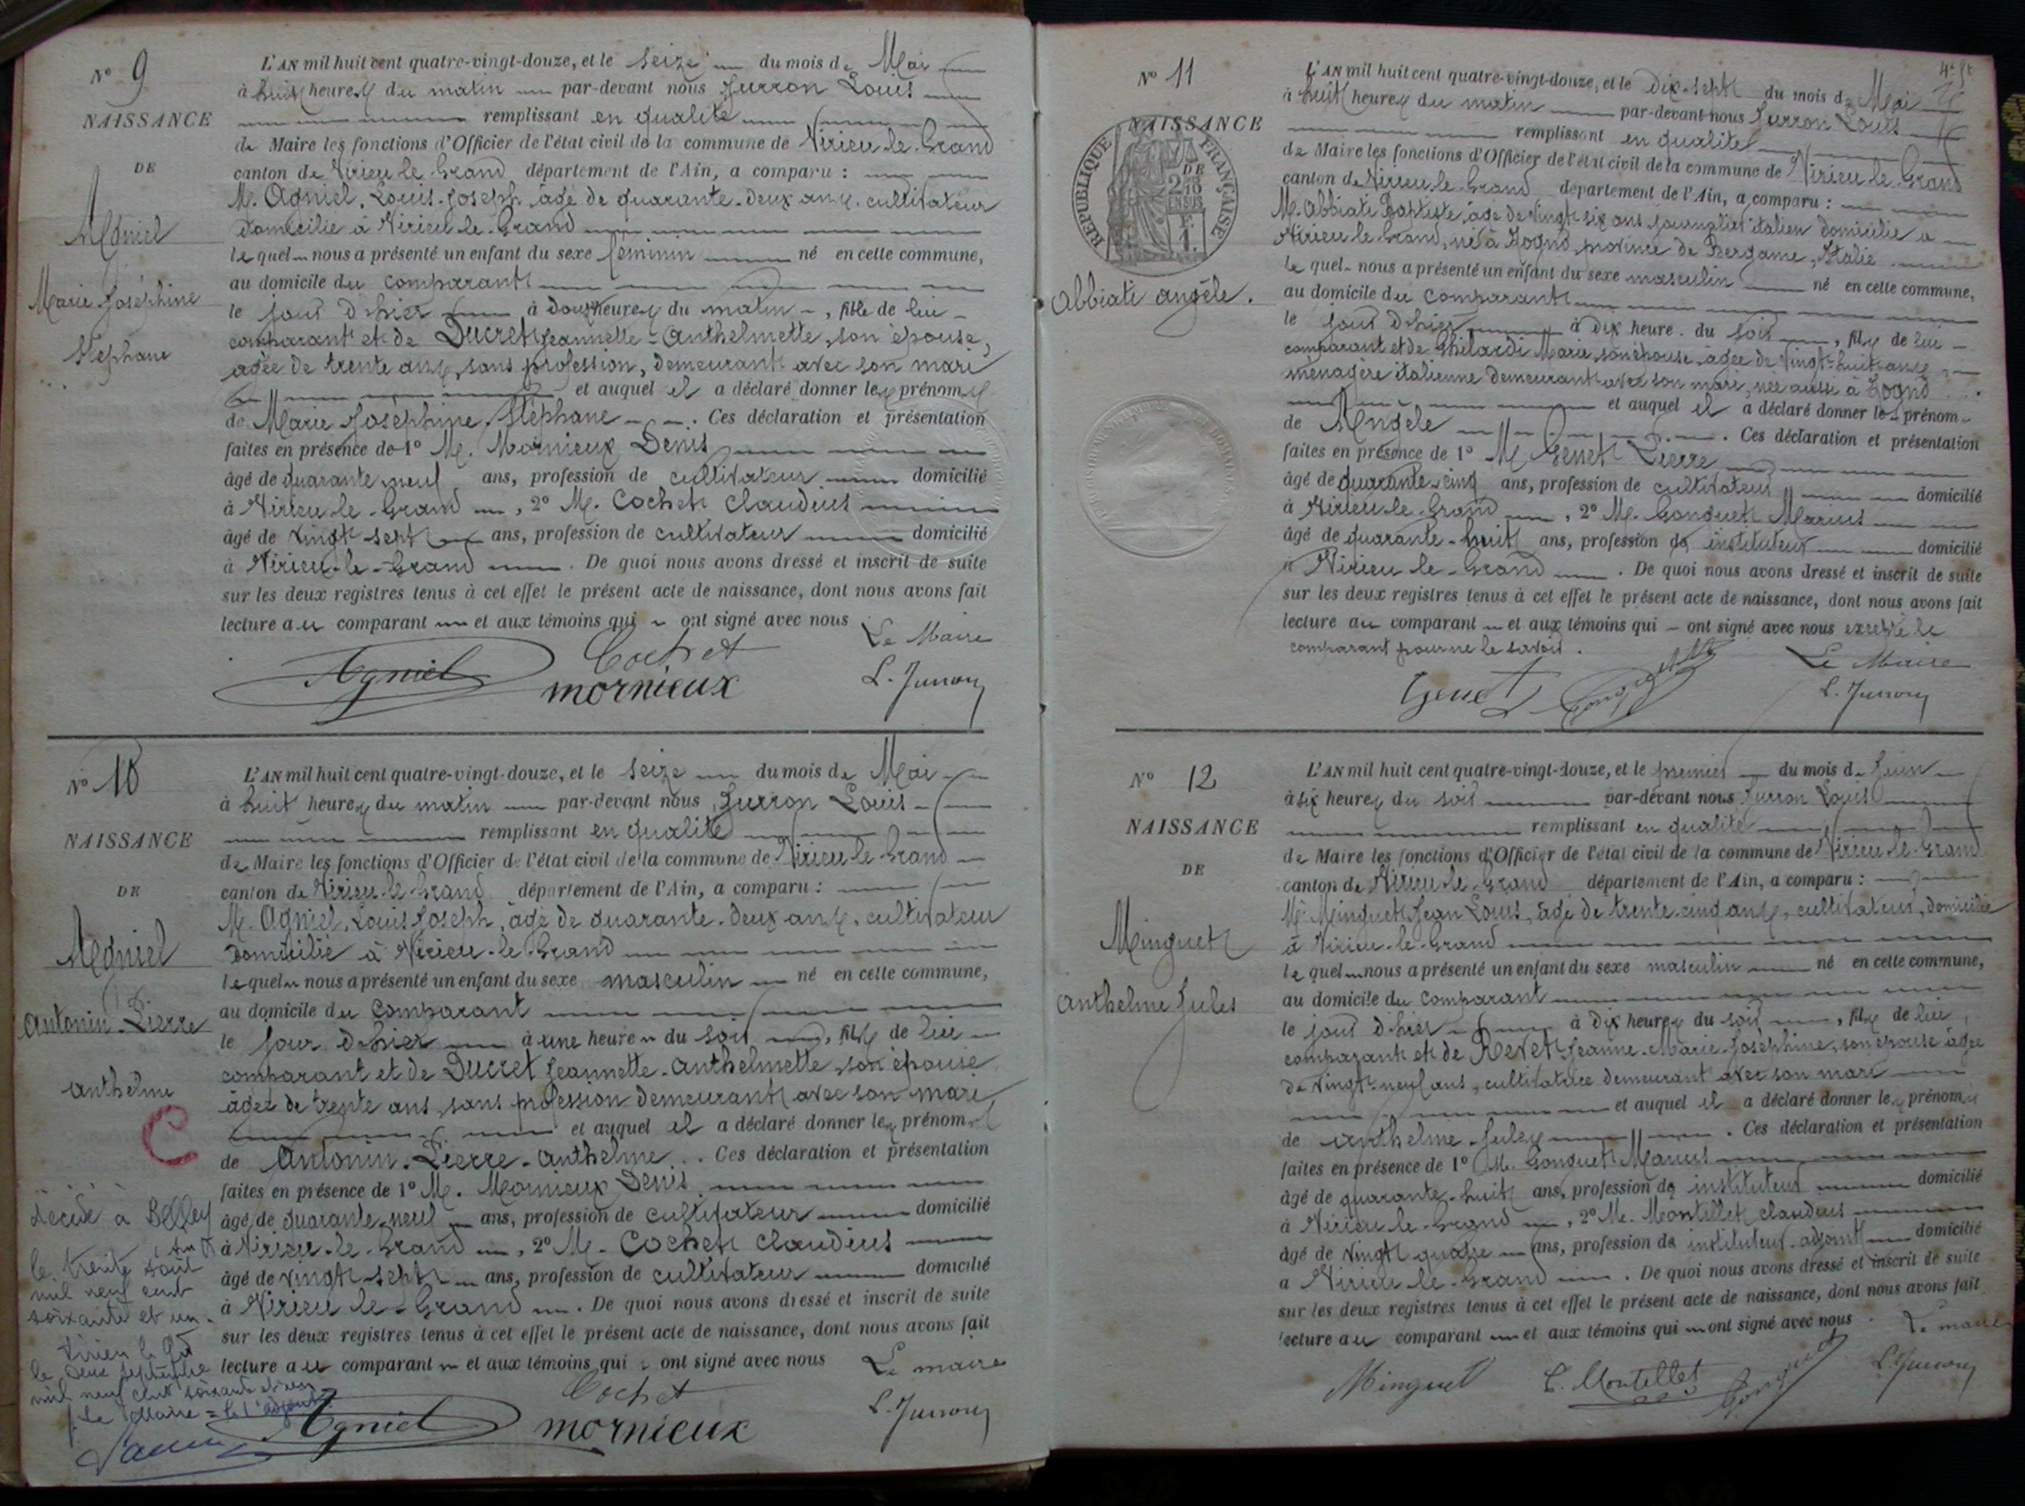 N° 9
NAISSANCE
DE
Agniel
Marie Joséphine
Stéphane
L'AN mil huit cent quatre-vingt-douze, et le seize du mois de Mai
à huit heures du matin par-devant nous Jurron Louis
remplissant en qualité
de Maire les fonctions d'Officier de l'état civil de la commune de Virieu-le-Grand
canton de Virieu-le-Grand département de l'Ain, a comparu :
M. Agniel, Louis-Joseph, âgé de quarante-deux ans, cultivateur
domicilié à Virieu-le-Grand
lequel nous a présenté un enfant du sexe féminin né en cette commune,
au domicile du comparant
le jour d'hier à heures du matin, fille de lui
comparant et de Ducret Jeannette-Anthelmette, son épouse,
âgée de trente ans, sans profession, demeurant avec son mari
et auquel il a déclaré donner les prénoms
de Marie Joséphine Stéphane. Ces déclaration et présentation
faites en présence de 1° M. Mornieux Denis
âgé de quarante neuf ans, profession de cultivateur domicilié
à Virieu-le-Grand, 2° M. Cochet Claudius
âgé de vingt sept ans, profession de cultivateur domicilié
à Virieu-le-Grand. De quoi nous avons dressé et inscrit de suite
sur les deux registres tenus à cet effet le présent acte de naissance, dont nous avons fait
lecture au comparant et aux témoins qui ont signé avec nous
Le Maire
Agniel Cochet
mornieux L. Jurron
N° 10
NAISSANCE
DE
Agniel
Antonin-Pierre
Anthelme
C
L'AN mil huit cent quatre-vingt-douze, et le seize du mois de Mai
à huit heures du matin par-devant nous Jurron Louis
remplissant en qualité
de Maire les fonctions d'Officier de l'état civil de la commune de Virieu-le-Grand
canton de Virieu-le-Grand département de l'Ain, a comparu :
M. Agniel, Louis Joseph, âgé de quarante-deux ans, cultivateur
domicilié à Virieu-le-Grand
lequel nous a présenté un enfant du sexe masculin né en cette commune,
au domicile du comparant
le jour d'hier à une heure du soir, fils de lui
comparant et de Ducret Jeannette-Anthelmette, son épouse
âgée de trente ans, sans profession demeurant avec son mari
et auquel il a déclaré donner les prénoms
de Antonin-Pierre-Anthelme. Ces déclaration et présentation
faites en présence de 1° M. Mornieux Denis
âgé de quarante-neuf ans, profession de cultivateur domicilié
à Virieu-le-Grand, 2° M. Cochet Claudius
âgé de vingt-sept ans, profession de cultivateur domicilié
à Virieu-le-Grand. De quoi nous avons dressé et inscrit de suite
sur les deux registres tenus à cet effet le présent acte de naissance, dont nous avons fait
lecture au comparant et aux témoins qui ont signé avec nous
Le maire
Agniel Cochet
mornieux L. Jurron
décédé à Belley
(Ain)
le trente août
mil neuf cent
soixante et un.
Virieu le Gd
le deux septembre
mil neuf cent soixante et un
Le Maire = l'adjoint
N° 11
NAISSANCE
DE
RÉPUBLIQUE FRANÇAISE
2/10 EN SUS
Abbiati Angèle.
L'AN mil huit cent quatre-vingt-douze, et le Dix-sept du mois de Mai
à huit heures du matin par-devant nous Jurron Louis
remplissant en qualité
de Maire les fonctions d'Officier de l'état civil de la commune de Virieu-le-Grand
canton de Virieu-le-Grand département de l'Ain, a comparu :
M. Abbiati Baptiste, âgé de vingt six ans, journalier italien domicilié à
Virieu-le-Grand, né à Zogno, province de Bergame, Italie
lequel nous a présenté un enfant du sexe masculin né en cette commune,
au domicile du comparant
le jour d'hier à dix heure du soir, fils de lui
comparant et de Ghilardi Marie, son épouse, âgée de vingt-huit ans,
ménagère italienne demeurant avec son mari, née aussi à Zogno
et auquel il a déclaré donner le prénom
de Angèle. Ces déclaration et présentation
faites en présence de 1° M. Genet Pierre
âgé de quarante-cinq ans, profession de cultivateur domicilié
à Virieu-le-Grand, 2° M. Gonguet Marius
âgé de quarante-huit ans, profession de instituteur domicilié
à Virieu-le-Grand. De quoi nous avons dressé et inscrit de suite
sur les deux registres tenus à cet effet le présent acte de naissance, dont nous avons fait
lecture au comparant et aux témoins qui ont signé avec nous excepté le
comparant pour ne le savoir.
Le Maire
Genet Gonguet L. Jurron
N° 12
NAISSANCE
DE
Minguet
Anthelme Jules
L'AN mil huit cent quatre-vingt-douze, et le premier du mois de Juin
à six heures du soir par-devant nous Jurron Louis
remplissant en qualité
de Maire les fonctions d'Officier de l'état civil de la commune de Virieu-le-Grand
canton de Virieu-le-Grand département de l'Ain, a comparu :
M. Minguet Jean Louis, âgé de trente-cinq ans, cultivateur, domicilié
à Virieu-le-Grand
lequel nous a présenté un enfant du sexe masculin né en cette commune,
au domicile du comparant
le jour d'hier à dix heures du soir, fils de lui
comparant et de Revet Jeanne-Marie-Joséphine, son épouse âgée
de vingt-neuf ans, cultivatrice demeurant avec son mari
et auquel il a déclaré donner les prénoms
de Anthelme-Jules. Ces déclaration et présentation
faites en présence de 1° M. Gonguet Marius
âgé de quarante-huit ans, profession de instituteur domicilié
à Virieu-le-Grand, 2° M. Montillet Claudius
âgé de vingt quatre ans, profession de instituteur-adjoint domicilié
à Virieu-le-Grand. De quoi nous avons dressé et inscrit de suite
sur les deux registres tenus à cet effet le présent acte de naissance, dont nous avons fait
lecture au comparant et aux témoins qui ont signé avec nous.
Le maire
Minguet C. Montillet Gonguet L. Jurron